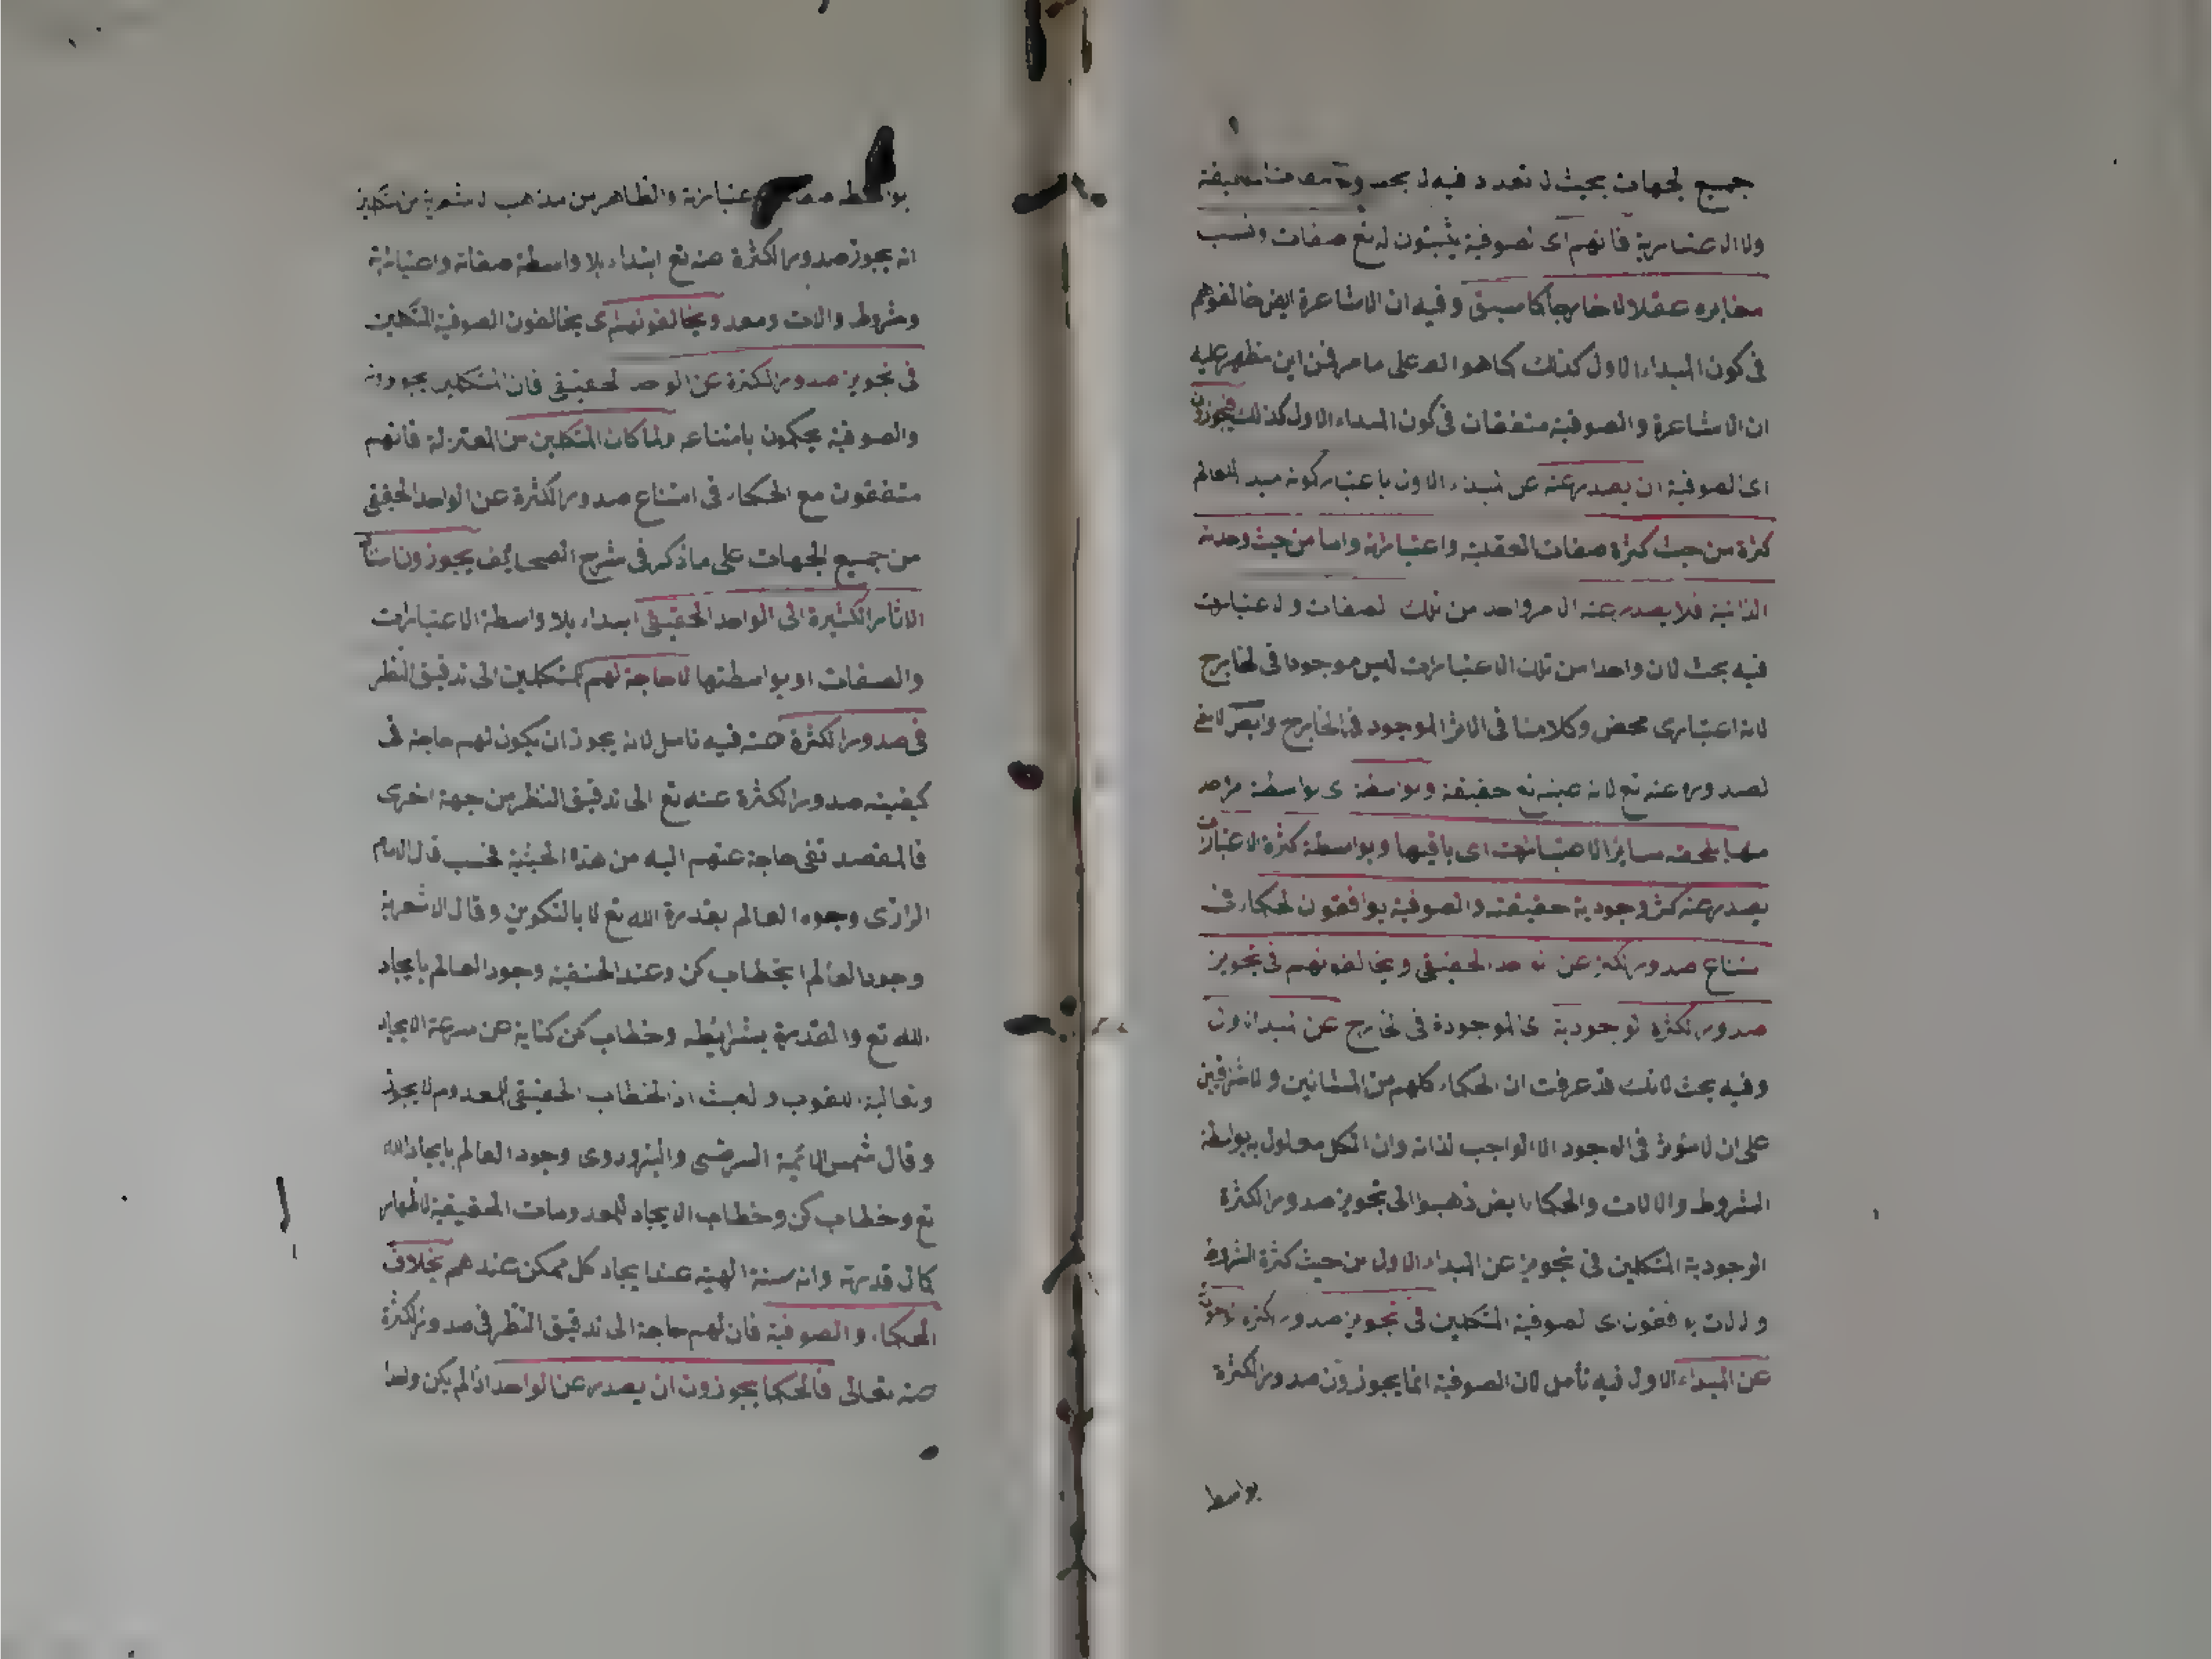 جميع الجهات بحيث لا تعدد فيه لا بحسب
ولا الاعتبارية فانهم اى الصوفية يثبتون له تع صفات ونسب
مغايره عقلا لا خارجا كما سبق وفيه ان الاشاعرة ايض خالفوهم
فى كون المبداء الاول كذلك كما هو الظ على ما مر فمن اين مظهر عليه
ان الاشاعرة والصوفية متفقات فى كون المبداء الاول كذلك فيجوزون
اى الصوفية ان يصدر عنه عن المبداء الاول باعتبار كونه مبد للعالم
كثرة من حيث كثرة صفات العقلية واعتباراته واما من حيث وحدته
الذاتية فلا يصدر عنه الا امر واحد من تلك الصفات والاعتبارات
فيه بحث لان واحدا من تلك الاعتبارات ليس موجودا فى الخارج
لانه اعتبارى محض وكلامنا فى الاثر الموجود فى الخارج وايض لا معنى
لصدوره عنه تع لانه عينه تع حقيقة وبواسطة اى بواسطة
منها يلحقه سائر الاعتبارات اى باقيها وبواسطة كثرة الاعتبارات
يصدر عنه كثرة وجودية حقيقته والصوفية يوافقون الحكماء فى
امتناع صدور الكثرة عن الواحد الحقيقى ويخالفونهم فى تجويز
صدور الكثرة الوجودية اى الموجودة فى الخارج عن المبداء الاول
وفيه بحث لانك قد عرفت ان الحكماء كلهم من المشائين والاشراقيين
على ان لا مؤثر فى الوجود الا الواجب لذاته وان الكل معلول له بواسطة
الشروط والالات والحكماء ايض ذهبوا الى تجويز صدور الكثرة
الوجودية المتكلين فى تجويز عن المبداء الاول من حيث كثرة الشروط
والالات يوافقون اى الصوفية المتكلين فى تجويز صدور الكثرة
عن المبداء الاول فيه تأمل لان الصوفية انما يجوزون صدور الكثرة
بواسط
بواسطه اعتباراته والظاهر من مذهب الاشعرية من
انه يجوز صدور الكثرة عنه تع ابتداء بلا واسطة صفاته واعتباراته
وشروط والات ومعد ويخالفونهم اى يخالفون الصوفية المتكلين
فى تجويز صدور الكثرة عن الواحد الحقيقى فان المتكلين يجوزونه
والصوفية يحكمون بامتناعه ولما كان المتكلين من المعتزلة فانهم
متفقون مع الحكماء فى امتناع صدور الكثرة عن الواحد الحقيقى
من جميع الجهات على ما ذكر فى شرح الصحائف يجوزون اسناد
الاثار الكثيرة الى الواحد الحقيقى ابتداء بلا واسطة الاعتبارات
والصفات او بواسطتها لا حاجة لهم للمتكلين الى تدقيق النظر
فى صدور الكثرة عنه فيه تامل لانه يجوز ان يكون لهم حاجة فى
كيفيته صدور الكثرة عنه تع الى تدقيق النظر من جهة اخرى
فالمقصد نفى حاجة عنهم اليه من هذه الحيثية فحسب قال الامام
الرازى وجوه العالم بقدرة الله تع لا بالتكوين وقال الاشعرية
وجود العالم بخطاب كن وعند الحنفية وجود العالم بايجاد
الله تع والقدرة بشرائطه وخطاب كن كناية عن سرعة الايجاد
اذ الخطاب الحقيقى للمعدوم لا يجوز
وقال شمس الائمة السرخسى والبزوردوى وجود العالم بايجاد الله
تع وخطاب كن وخطاب الايجاد للمعدومات الحقيقية لاظهار
كمال قدرته وانه سنة الهية عند ايجاد كل ممكن عندهم بخلاف
الحكماء والصوفية فان لهم حاجة الى تدقيق النظر فى صدور الكثرة
عنه تعالى فالحكما يجوزون ان يصدر عن الواحد اذا لم يكن واحدا